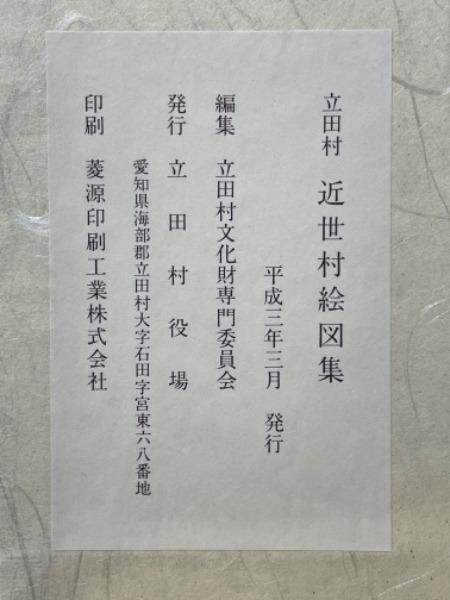 立田村 近世村絵図集
平成三年三月 発行
編集 立田村文化財専門委員会
発行 立田村役場
愛知県海部郡立田村大字石田字宮東六八番地
印刷 菱源印刷工業株式会社